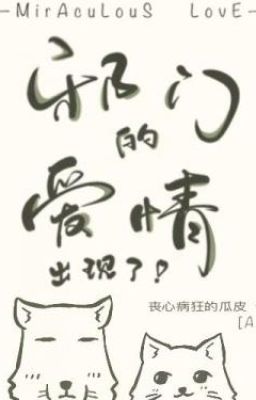 -MirAcuLouS LovE-
邪门
的
爱情
出现了?
丧心病狂的瓜皮
[A